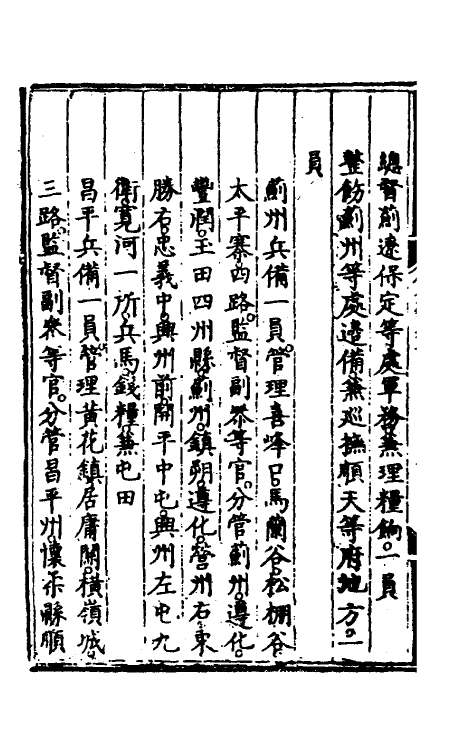 總督薊遼保定等處軍務兼理糧餉。一員
整飭薊州等處邊備兼巡撫順天等府地方。一
員
薊州兵備一員。管理喜峰口。馬蘭谷。松棚谷
太平寨四路。監督副叅等官。分管薊州。遵化。
豐潤。玉田四州縣。薊州。鎮朔。遵化。營州右。東
勝右。忠義中。興州前。開平中屯。興州左屯九
衛。寬河一所。兵馬。錢糧。兼屯田
昌平兵備一員。管理黃花鎮。居庸關。橫嶺城。
三路。監督副叅等官。分管昌平州。懷柔縣。順